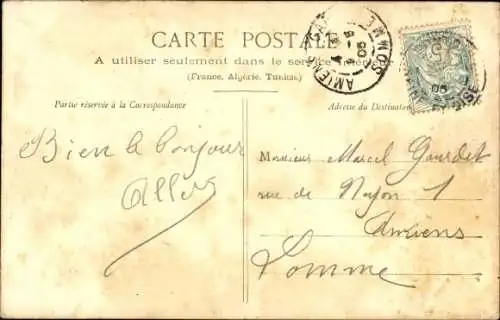 CARTE POSTALE
A utiliser seulement dans le service
(France, Algérie, Tunisie.)
Partie réservée à la Correspondance
Adresse du Destinataire
Bien le bonjour
Monsieur Marcel Gourdet
rue de Noyon 1
Amiens
Somme
AMIENS
SOMME
05